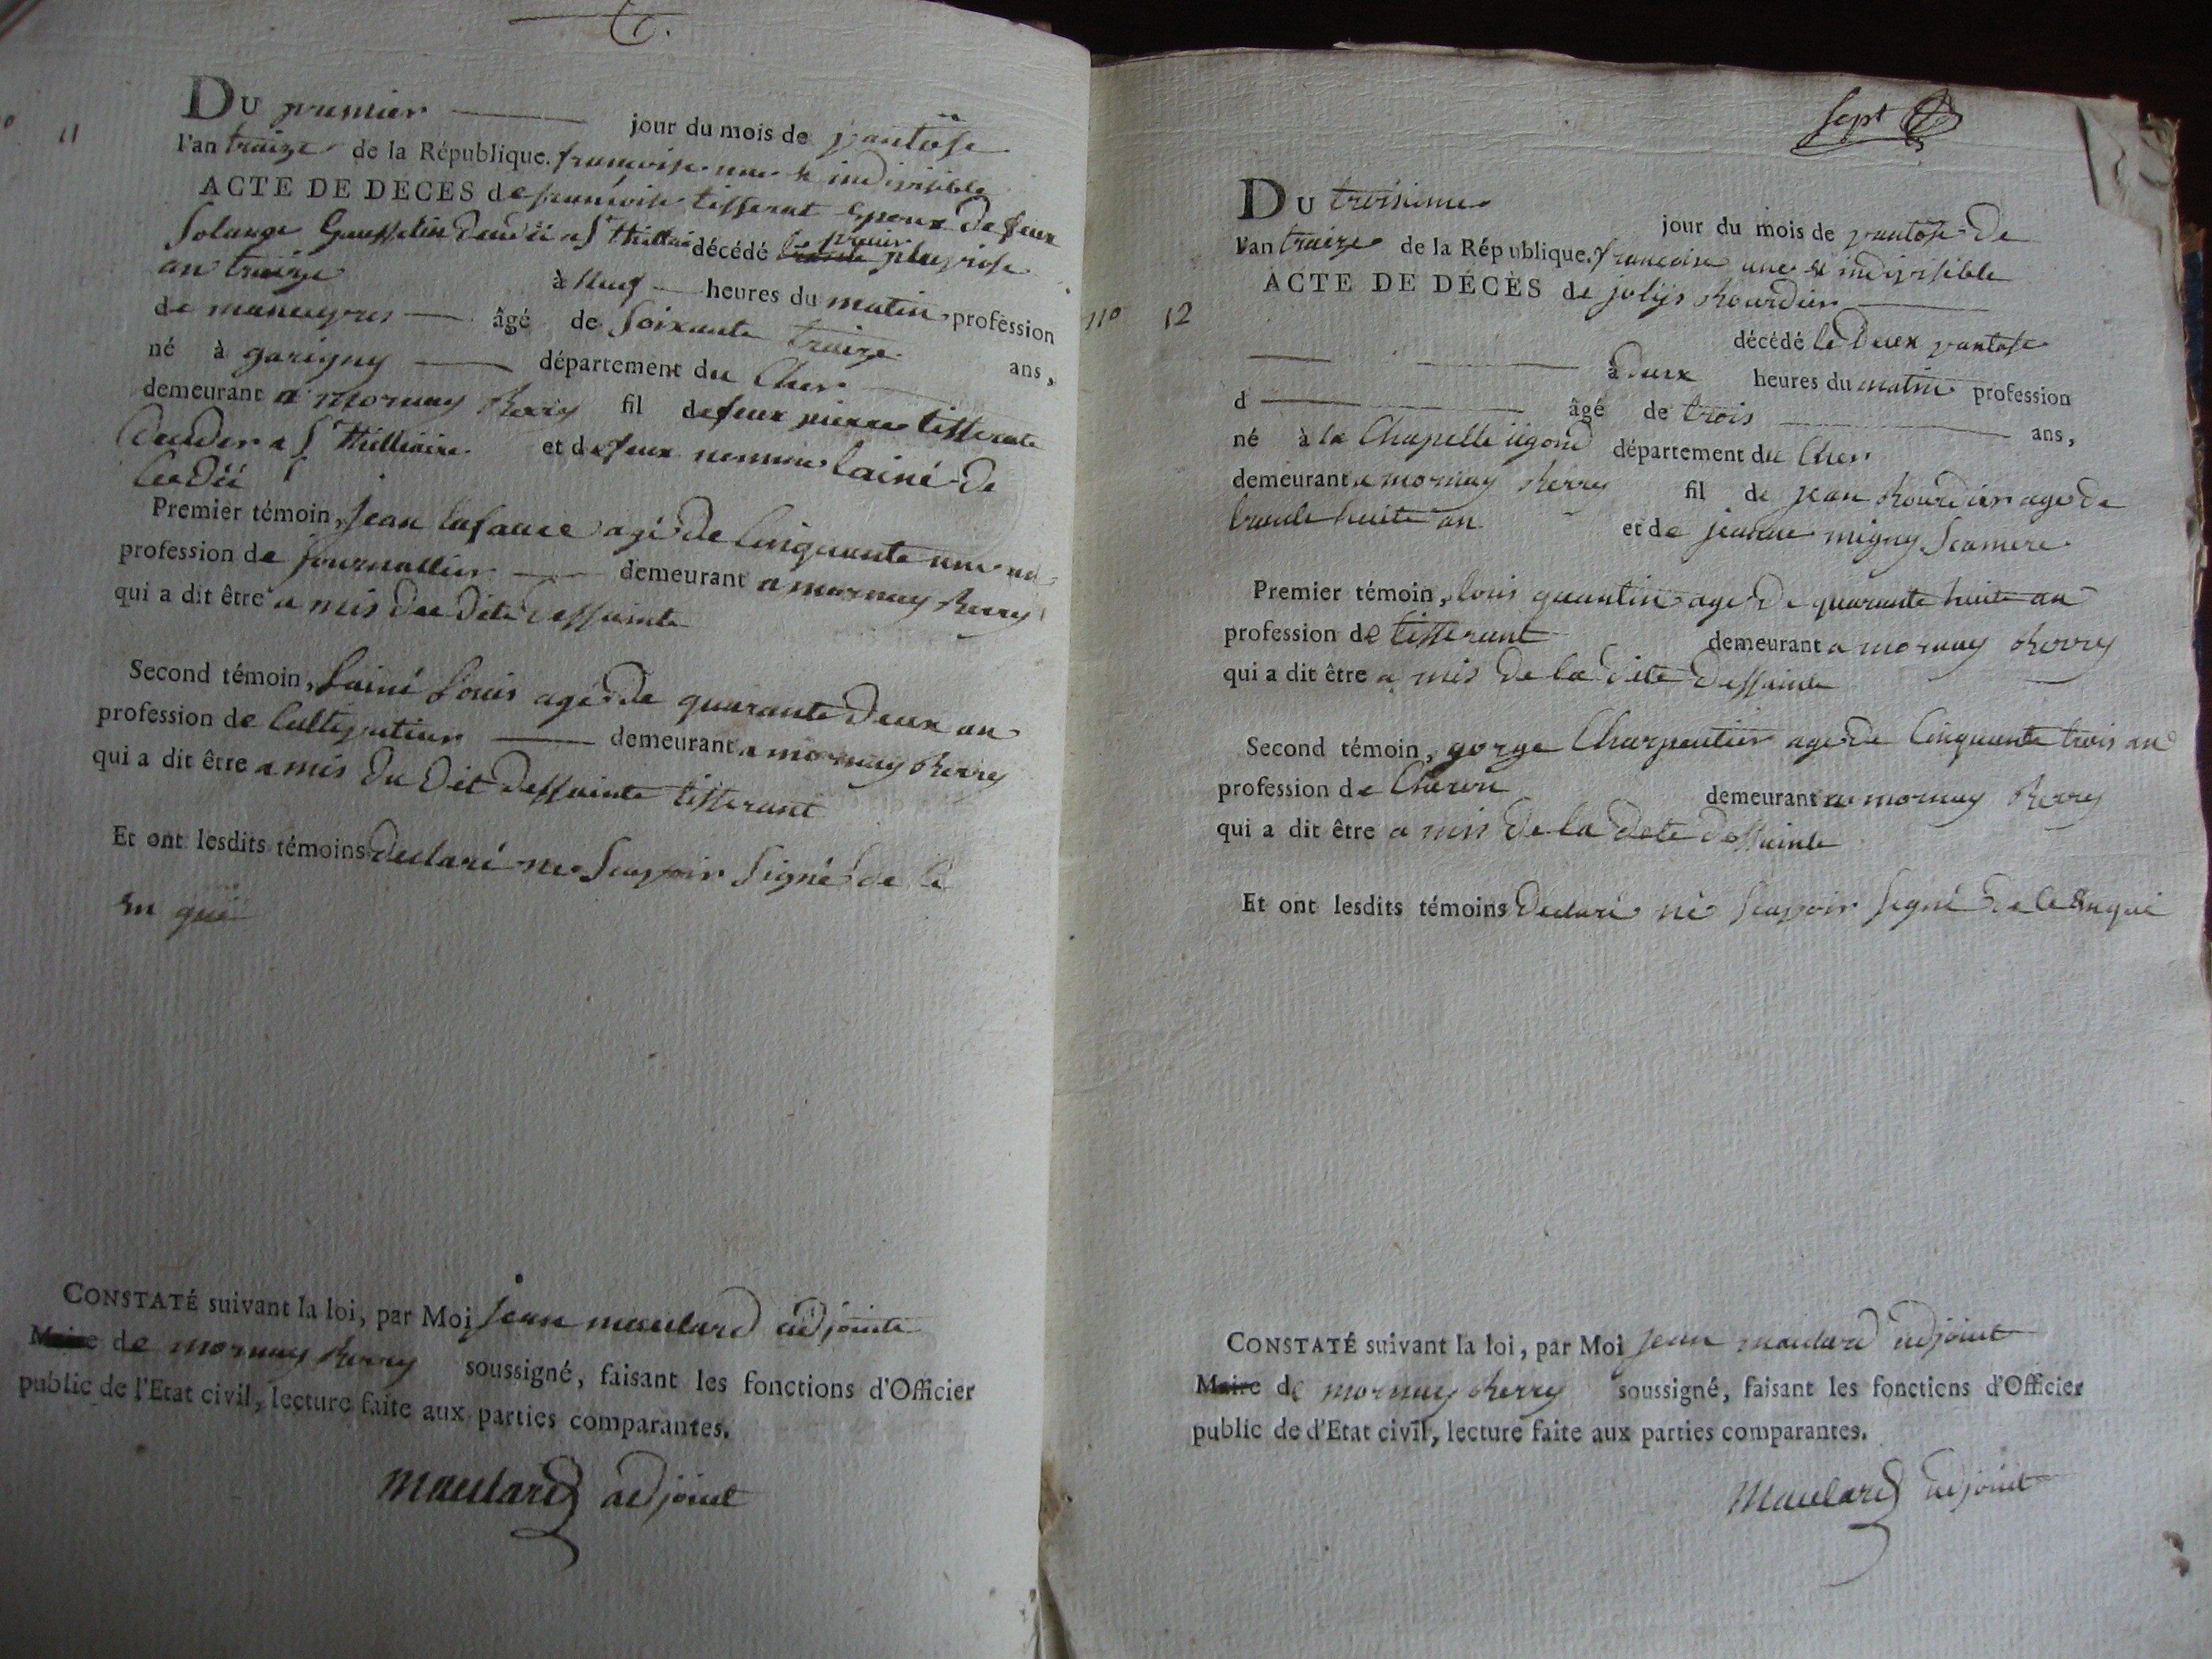 11
DU premier jour du mois de vantôse
l'an traize de la République. francoise une & indivisible
ACTE DE DECES de francoise tisserat Epoux de feux
Solange Gausselin décédé le premier pluviose
an traize à neuf heures du matin profession
de maneuvres âgé de Soixante traize ans,
né à garigny département du Cher
demeurant a mornay Berry fil de feux pierre tisserate
a St Thilliaire et de feux lainé de
Premier témoin, jean lafance agé de Cinquante une an
profession de journallier demeurant a mornay Berry
qui a dit être a mis du dite deffunte
Second témoin, Lainé Louis agé de quarante deux an
profession de Cultivateur demeurant a mornay Berry
qui a dit être a mis du dit deffunte tisserant
Et ont lesdits témoins declaré ne scavoir signé de ce
en qui
CONSTATÉ suivant la loi, par Moi jean maulard adjointe
Maire de mornay Berry soussigné, faisant les fonctions d'Officier
public de l'Etat civil, lecture faite aux parties comparantes.
Maulard adjoint
sept
110 12
DU troisieme jour du mois de vantose de
l'an traize de la République. francoise une & indivisible
ACTE DE DÉCÈS de Bourdier
décédé le deux vantose
à deux heures du matin profession
d âgé de trois ans,
né à la Chapelle ugond département du Cher
demeurant a mornay Berry fil de jean Bourdier age de
trante huite an et de jeanne migny sa mere
Premier témoin, louis quantin age de quarante huite an
profession de tisserant demeurant a mornay Berry
qui a dit être a mis de la dite deffunte
Second témoin, gorge Charpentier age de Cinquante trois an
profession de Charon demeurant a mornay Berry
qui a dit être a mis de la dete deffunte
Et ont lesdits témoins declaré ne scavoir signé de ce enqui
CONSTATÉ suivant la loi, par Moi jean maulard adjoint
Maire de mornay Berry soussigné, faisant les fonctions d'Officier
public de d'Etat civil, lecture faite aux parties comparantes.
Maulard adjoint